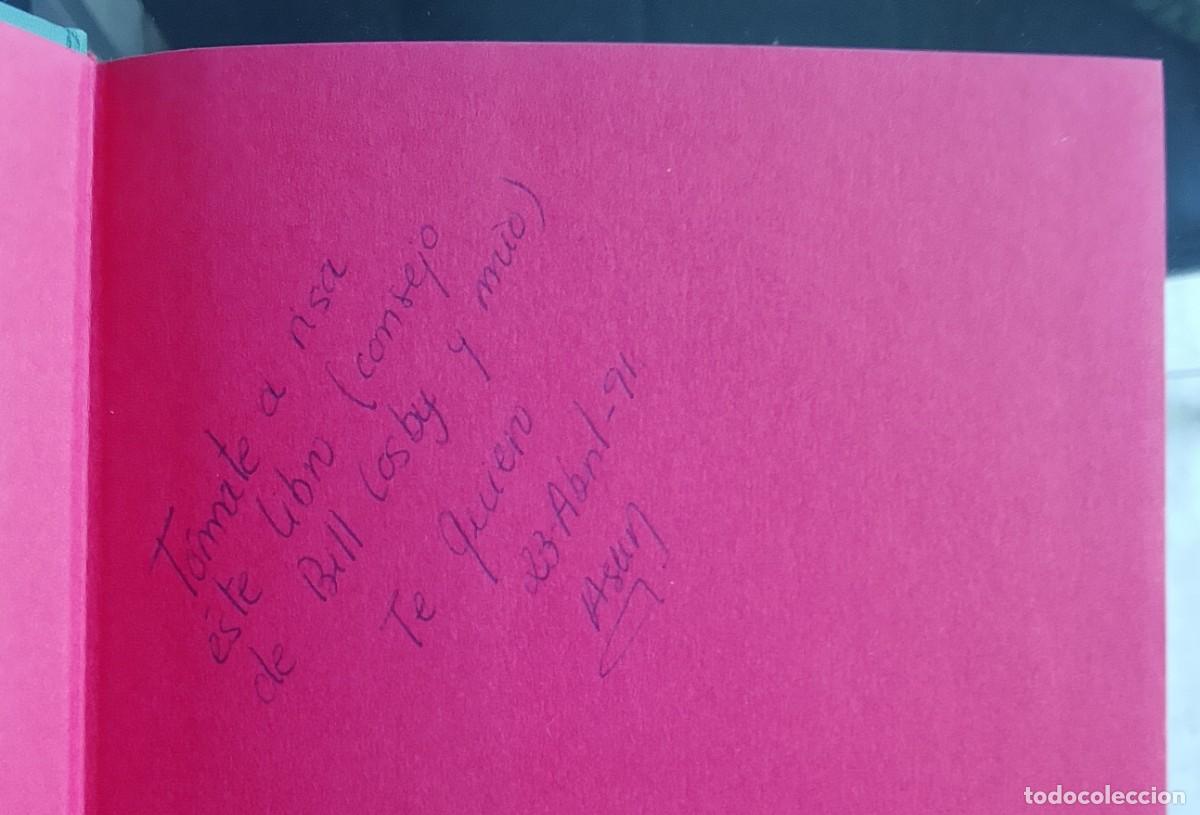 Tómate a risa
éste libro (consejo
de Bill Cosby y mío)
Te quiero
23-Abril-91.
Asun
todocoleccion